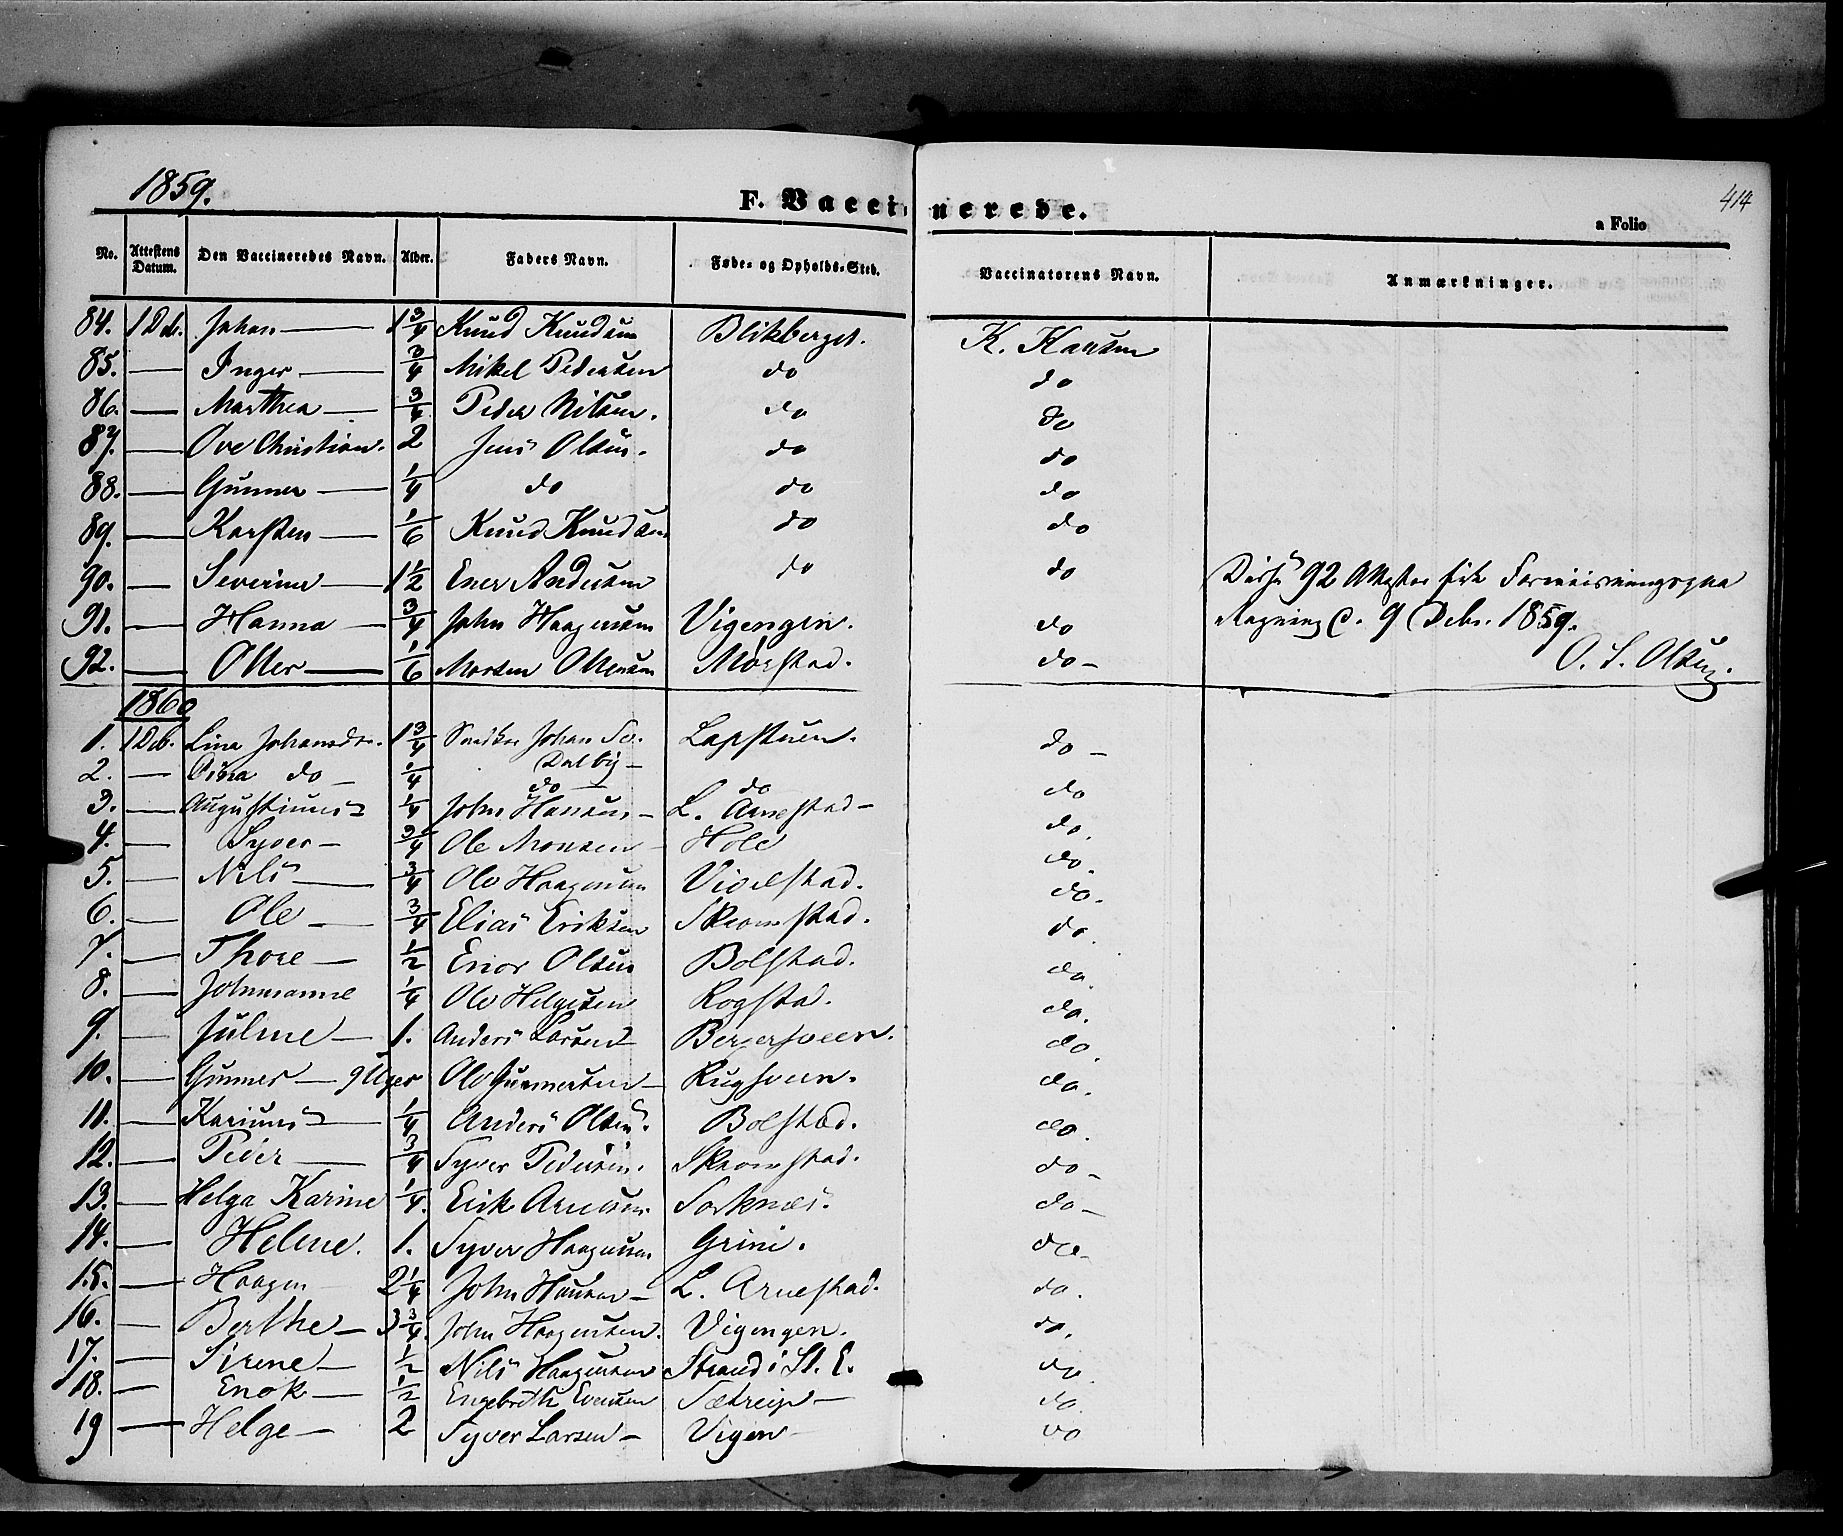 1859.
F. Vaccinerede.
414
a Folio
No. Attestens Datum. Den Vaccineredes Navn. Alder. Faders Navn. Føde- og Opholds-Sted. Vaccinatorens Navn. Anmærkninger.
84. 1 Deb. Johan — 1 3/4 Knud Knudsen Blikberget. K. Hansen
85. — Inger — 3/4 Mikel Pedersen do do
86. — Marthea — 3/4 Peder Nilsen. do do
87. — Ove Christian. 2 Jens Olsen. do do
88. — Gunner — 1/4 do do do
89. — Karsten — 1/6 Knud Knudsen do do
90. — Severine — 1 1/2 Ener Andersen do do Disse 92 Attester
91. — Hanna — 3/4 John Haagensen Vigengen. do 9 Debr. 1859.
92. — Otter — 1/6 Morten Ottersen Mørstad. do - O. S. Olsen.
1860
1. 1 Deb. Lina Johansdr. 1 3/4 Johan Lapstuen. do -
Dalby -
2. — Dina do - 1/4 do do do
3. — Augustinus 1/4 John Hansen - L. Arnestad - do.
4. — Syver - 3/4 Ole Monsen - Hole do.
5. — Nils — 3/4 Ole Haagensen Videlstad. do.
6. — Ole — 3/4 Elias Eriksen Skromstad. do.
7. — Thore — 1/2 Enor Olsen Bolstad. do.
8. — Johannanne 1/4 Ole Helgesen Rogstad. do.
9. — Juline — 1. Anders Larsen Bergersveen. do.
10. — Gunner — 9 Uger Ole Gunnersen - Rugsveen. do.
11. — Karinus 1/4 Anders Olsen. Bolstad. do.
12. — Peder — 3/4 Syver Pedersen. Skromstad. do -
13. — Helga Karine 1/4. Erik Arnesen Sorknæs. do -
14. — Helene. 1. Syver Haagensen Grini. do -
15. — Haagen 2 1/4 John Hansen - L. Arnestad. do.
16. — Berthe — 3 3/4. John Haagensen. Vigengen. do.
17. — Sirene — 1/2 Nils Haagensen Strand i St. E. do
18. — Enok — 1/2 Engebreth Evensen do.
19 — Helge — 2 Syver Larsen - Vigen - do